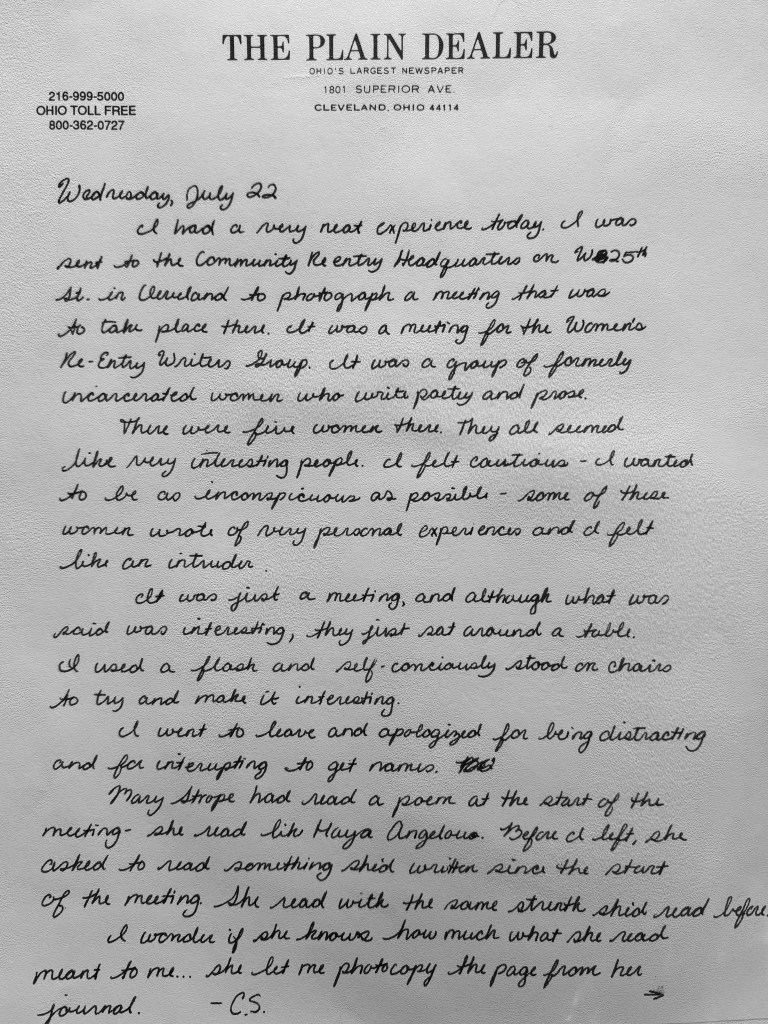 THE PLAIN DEALER
OHIO'S LARGEST NEWSPAPER
1801 SUPERIOR AVE.
CLEVELAND, OHIO 44114
216-999-5000
OHIO TOLL FREE
800-362-0727
Wednesday, July 22
I had a very neat experience today. I was
sent to the Community Re entry Headquarters on W 25th
St. in Cleveland to photograph a meeting that was
to take place there. It was a meeting for the Women's
Re-Entry Writers Group. It was a group of formerly
incarcerated women who write poetry and prose.
There were five women there. They all seemed
like very interesting people. I felt cautious - I wanted
to be as inconspicuous as possible - some of these
women wrote of very personal experiences and I felt
like an intruder.
It was just a meeting, and although what was
said was interesting, they just sat around a table.
I used a flash and self-conciously stood on chairs
to try and make it interesting.
I went to leave and apologized for being distracting
and for interupting to get names.
Mary Strope had read a poem at the start of the
meeting - she read like Maya Angelou. Before I left, she
asked to read something she'd written since the start
of the meeting. She read with the same strenth she'd read before.
I wonder if she knows how much what she read
meant to me... she let me photocopy the page from her
journal. - C.S. →